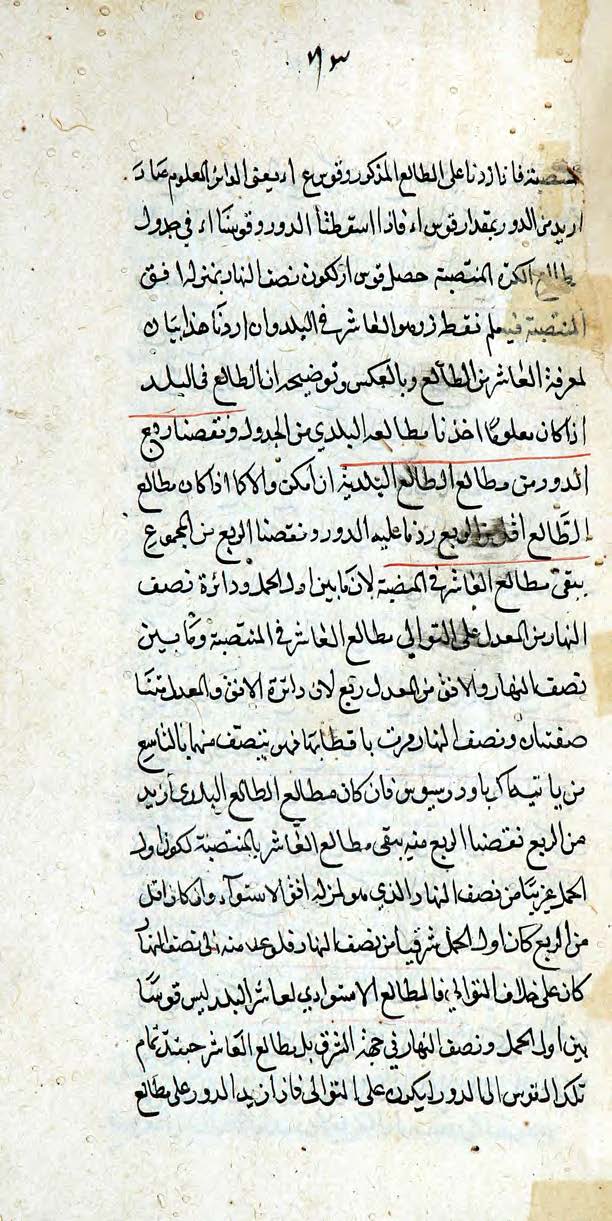 ٦٣
المنتصبة فانا زدنا على الطالع المذكور وقوس ع ا يعنى الدائر المعلوم عما د
ازيد من الدور بمقدار قوس اء فاذا اسقطنا الدور وقوسنا اء فى جدول
مطالع الكرة المنتصبة حصل قوس از لكون نصف النهار بمنزلة افق
المنتصبة فيعلم نقطة ز وهو العاشر فى البلد وان اردنا هذا بيان
لمعرفة العاشر من الطالع وبالعكس وتوضيحه ان الطالع فى البلد
اذا كان معلوما اخذنا مطالعه البلدى من الجدول ونقصنا ربع
الدور من مطالع الطالع البلدية ان امكن والا كما اذا كان مطالع
الطالع اقل من الربع زدنا عليه الدور ونقصنا الربع من المجموع
يبقى مطالع العاشر فى لان ما بين اول الحمل ودائرة نصف
النهار من المعدل على التوالى مطالع العاشر فى المنتصبة وما بين
نصف النهار والافق من المعدل ربع لان دائرة الافق والمعدل
ونصف النهار مرت باقطابهما فهو ينتصف منهما بالتاسع
من كر ثاوذوسيوس فان كان مطالع الطالع البلدى ازيد
من الربع نقصنا الربع منه يبقى مطالع العاشر بالمنتصبة لكون اول
الحمل غربيا من نصف النهار الذى هو بمنزلة افق الاستواء وان كان اقل
من الربع كان اول الحمل شرقيا من نصف النهار فلو عد منه الى نصف النهار
كان على خلاف التوالى فالمطالع الاستوادى لعاشر البلد ليس قوسا
بين اول الحمل ونصف النهار فى جهة الشرق بل مطالع العاشر حينئذ تمام
تلك القوس الى الدور ليكون على التوالى فاذا زيد الدور على مطالع